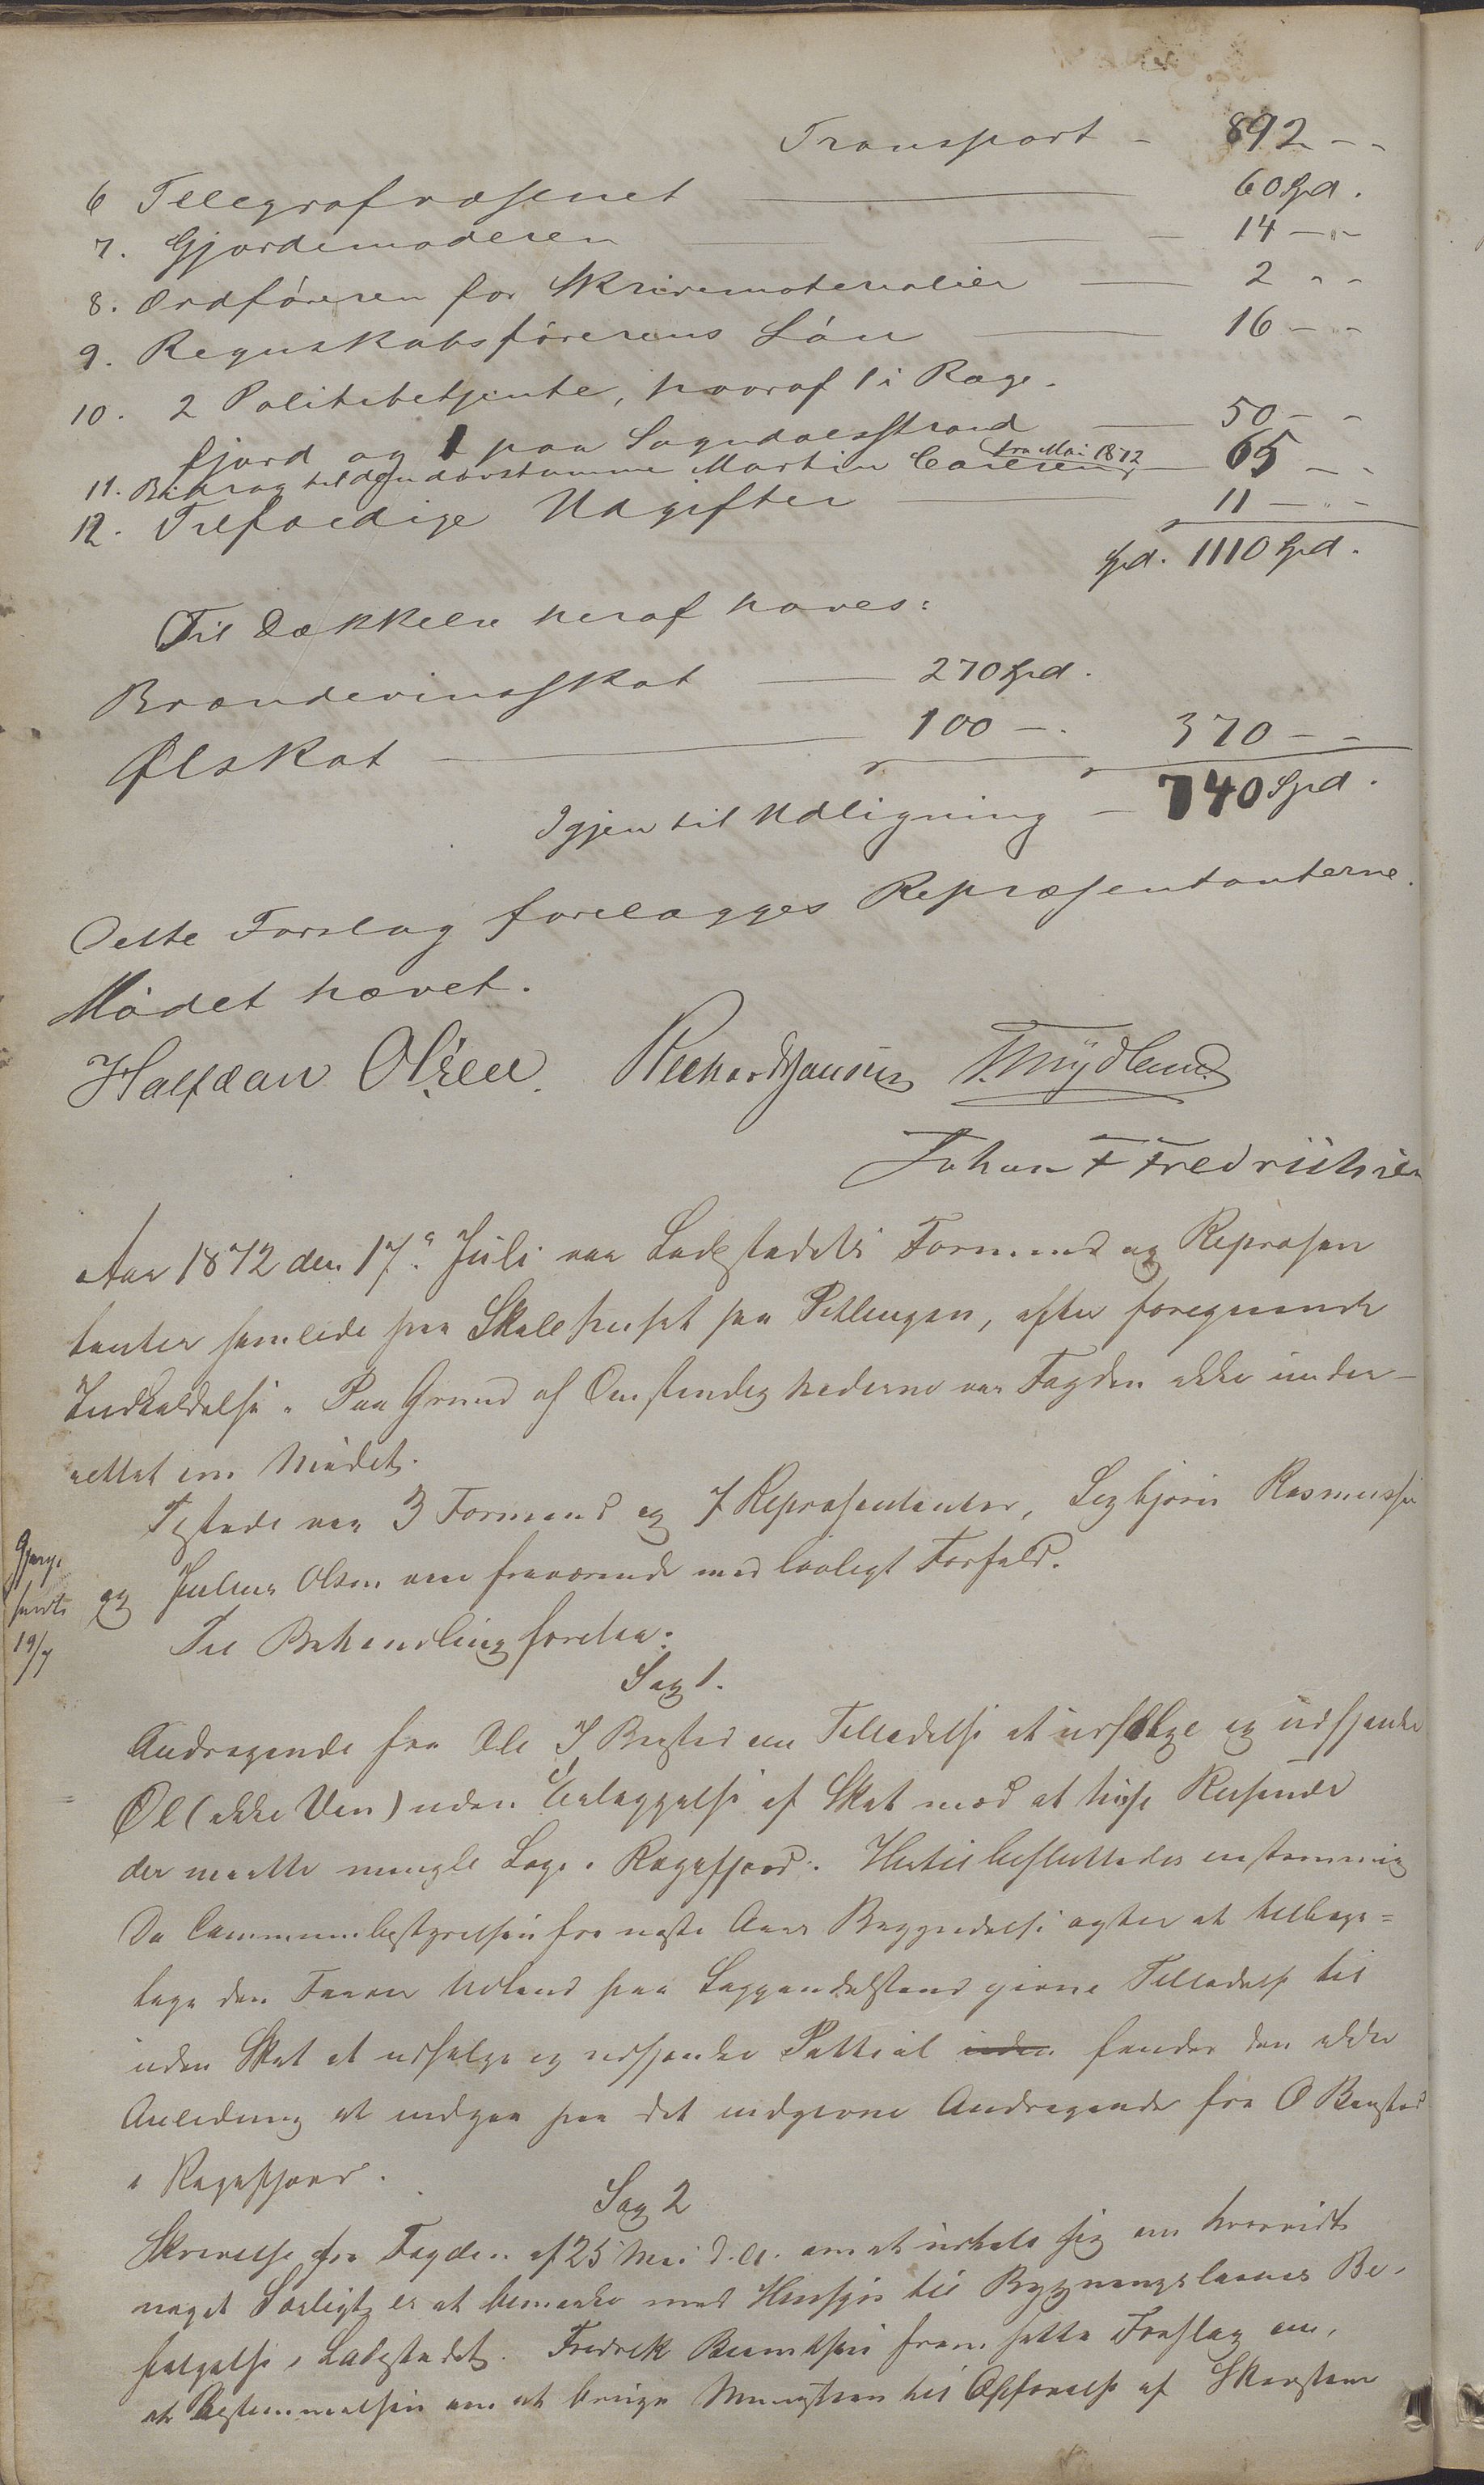 Transport - 892 - -
6 Telegrafvæsenet 60 Spd.
7. Gjordemoderen 14 - " -
8. Ordføreren for Skrivematerialier 2 " -
9. Regnskabsførerens Løn 16 - " -
10. 2 Politibetjente, hvoraf 1 i Ræge-
fjord og 1 paa Sogndalsstrand 50 - -
11. Bidrag til den døvstumme Martin Carlsen fra Mai 1872 65 - -
12. Tilfældige Udgifter 11 - " -
Spd. 1110 Spd.
Til Dækkelse heraf haves:
Brændevinsskat 270 Spd.
Ølskat 100 - . 370 - -
Igjen til Udligning - 740 Spd.
Dette Forslag forelægges Repræsentanterne.
Mødet hævet.
Halfdan Olsen. Richard Hansen T. Mydland
Johan F Fredriksen
Aar 1872 den 17. Juli var Ladestedets Formænd og Repræsen
tanter samlede paa Skolehuset paa Pitlingen, efter foregaaende
Indkaldelse. Paa Grund af Omstændighederne var Fogden ikke under-
rettet om Mødet.
Tilstede var 3 Formænd og 7 Repræsentanter, Segbjørn Rasmussen
og Julius Olsen vare fraværende med lovligt Forfald.
Gjenp.
sendt
19/7
Til Behandling foretoges:
Sag 1.
Andragende fra Ole J Bugsted om Tilladelse at udsælge og udskjænke
Øl (ikke Vin) uden Erlæggelse af Skat mod at huse Reisende
der maatte mangle Loge i Rægefjord. Hertil besluttedes enstemmig
Da Communebestyrelsen fra næste Aars Begyndelse agter at tilbage=
tage den Farver Udland paa Loggendalstrand givne Tilladelse til
uden Skat at udsælge og udskjænke Pottøl finder den ikke
Anledning at indgaa paa det indgivne Andragende fra O Bugsted
i Rægefjord.
Sag 2
Skrivelse fra Fogden af 25 Mai d.A. om at udtale sig om hvorvidt
noget Særligt er at bemærke med Hensyn til Bygningslovens Be-
følgelse i Ladestedet. Fredrik Berntsen fremsatte Forslag om,
at Bestemmelsen om at bruge Muursten til Opførelse af Skorsten